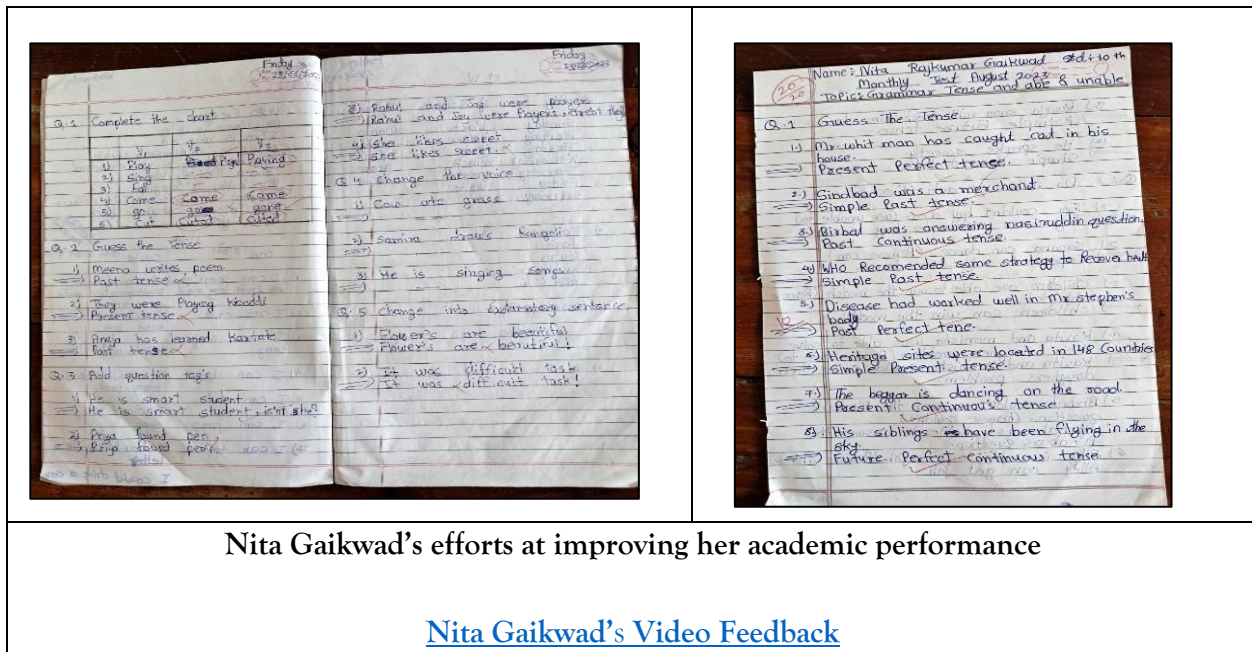 Friday
23/06/2023
Q.1 Complete the chart
V1 V2 V3
1) Play Playe Paying
2) Sing
3) Fai
4) Come Came Came
5) go goo gone
6) Cut Cutet cuted
Q.2 Guess the Tense
1) Meena writes poem
Past tense
2) They were Playing kabaddi
Present tense
3) Anuja has learned Karate
Past tense
Q.3 Add question tag's
1) He is smart student
He is smart student, isn't she?
2) Priya found pen,
Priya found pen
Friday
23/06/2023
3) Rahul and Jay were players
Rahul and Joy were Players, they
4) She likes sweet
She likes sweet.
Q.4 Change the Voice
1) Cow ate grass
2) Samira draw's Rangoli
3) He is singing song
Q.5 Change into Exclamatory sentence
1) Flower's are beautiful
Flower's are beautiful!
2) It was difficult task
It was difficult task!
20/20
Name: Nita Rajkumar Gaikwad Std: 10 th
Monthly Test August 2023
Topic: Grammar Tense and able & unable
Q.1 Guess The Tense
1.) Mr whit man has caught cad in his
house.
Present Perfect tense.
2.) Sindbad was a merchand.
Simple Past tense.
3.) Birbal was answering nasiruddin question.
Past Continuous tense.
4) WHO Recomended some strategy to Recover health
Simple Past tense.
5.) Disease had worked well in Mr stephen's
body
Past Perfect tene.
6.) Heritage sites were located in 148 Countries
Simple Present tense.
7.) The beggar is dancing on the road.
Present Continuou's tense
8) His siblings have been flying in the
sky.
Future Perfect Continuous tense.
Nita Gaikwad's efforts at improving her academic performance
Nita Gaikwad's Video Feedback